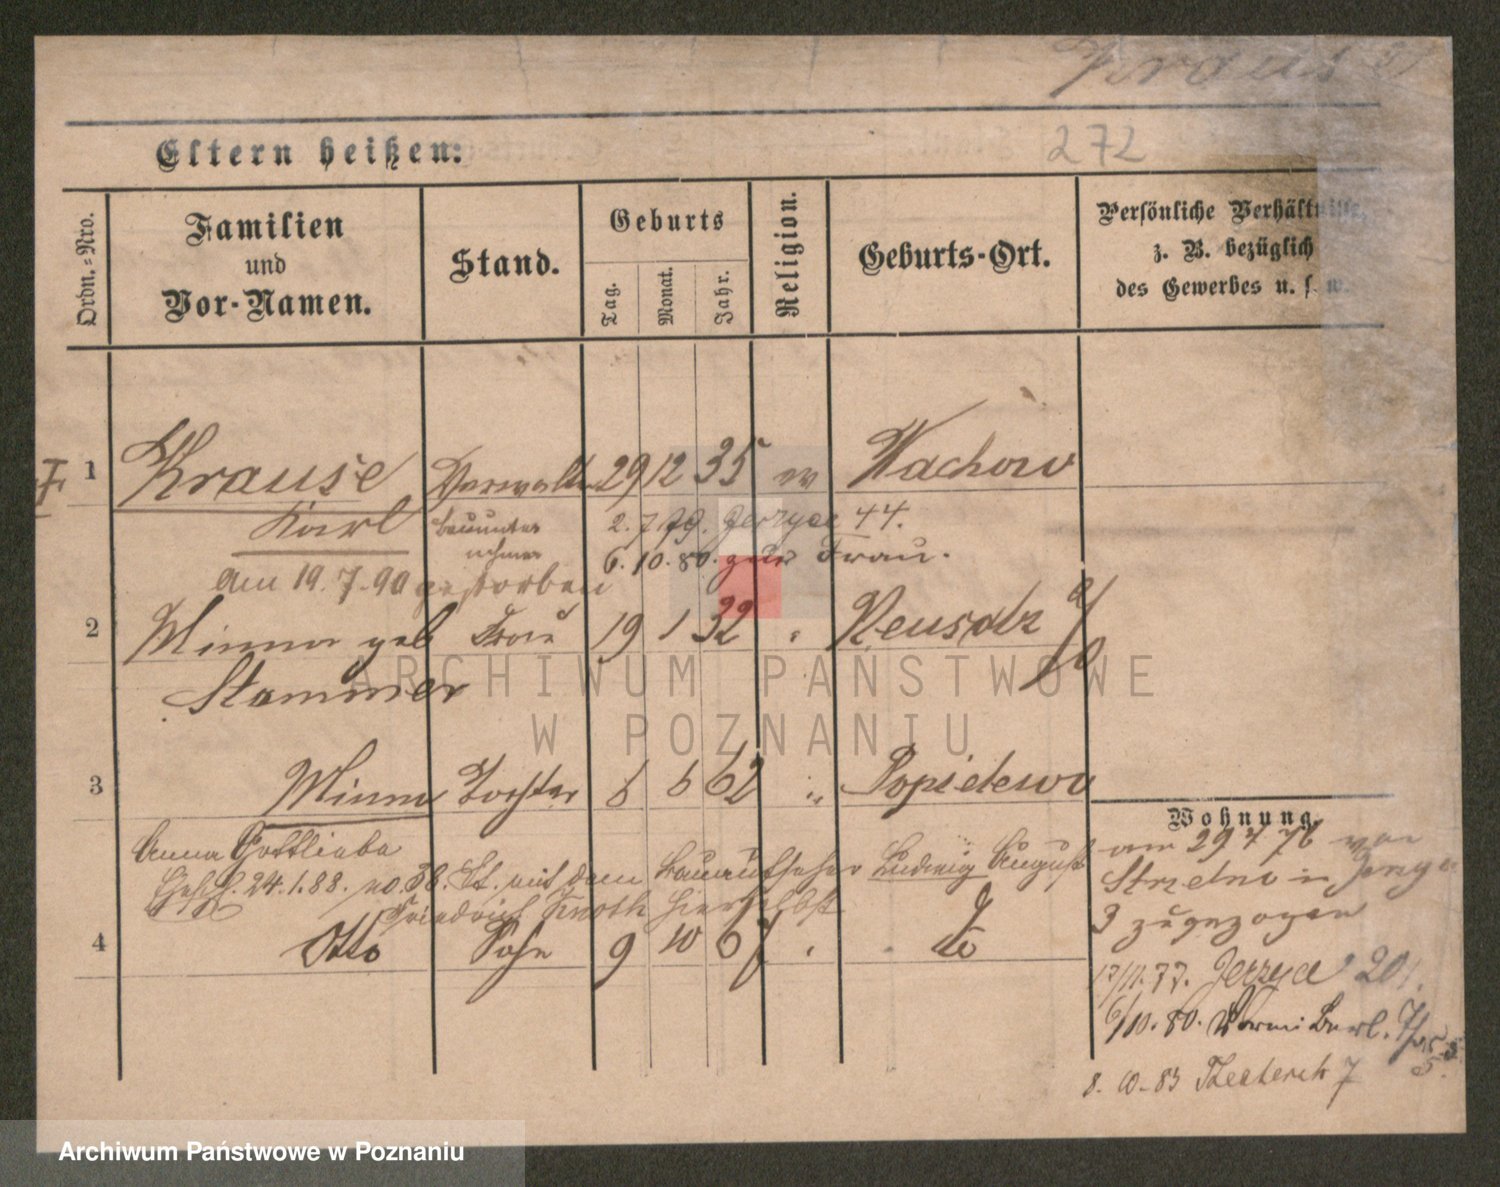 Kraus
272
Eltern heißen:
Ordn.=Nro.
Familien
und
Vor-Namen.
Stand.
Geburts
Tag.
Monat.
Jahr.
Religion.
Geburts-Ort.
Persönliche Verhältnisse,
z. B. bezüglich
des Gewerbes u. s. w.
1 Krause Verwalter 29 12 35 ev Wachow
Karl Bauunter 2. 7. 79. Jerzyce 44.
nehmer 6. 10. 80. zur Frau.
am 19. 7. 90 gestorben
2 Minna geb Frau 19 1 32 " Neusalz a/O
Stammer
3 Minna Tochter 6 6 62 " Popielewo
Wohnung.
Anna Gottlieba am 29 4 76 von
24. 1. 88. no. 38. St. mit dem Ludwig August Strelno in
Friedrich hierselbst 3 zugezogen
4 Otto Sohn 9 10 67 " do
17/11. 77. Jerzyce 20
6/10. 80. Berl.
8. 10. 83 Theaterstr 7
ARCHIWUM PAŃSTWOWE
W POZNANIU
Archiwum Państwowe w Poznaniu